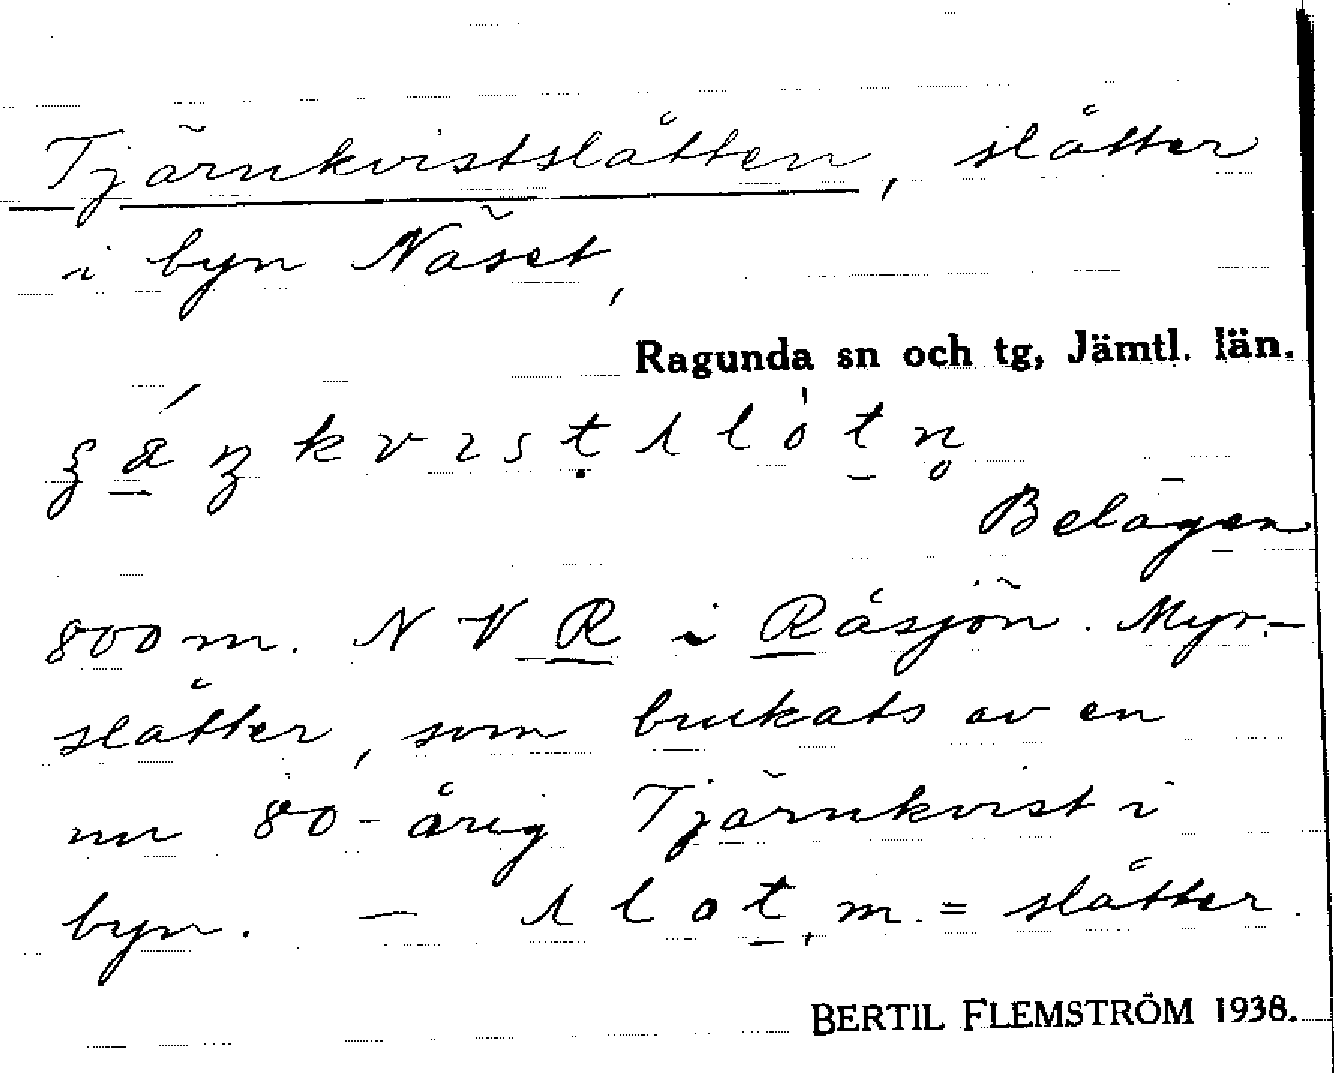 Tjärnkvistslåtten, slåtter
i byn Näset,
Ragunda sn och tg, Jämtl. län.
Belägen
800 m. N V R i Råsjön. Myr-
slåtter, som brukats av en
nu 80-årig Tjärnkvist i
byn. — = slåtter.
BERTIL FLEMSTRÖM 1938.